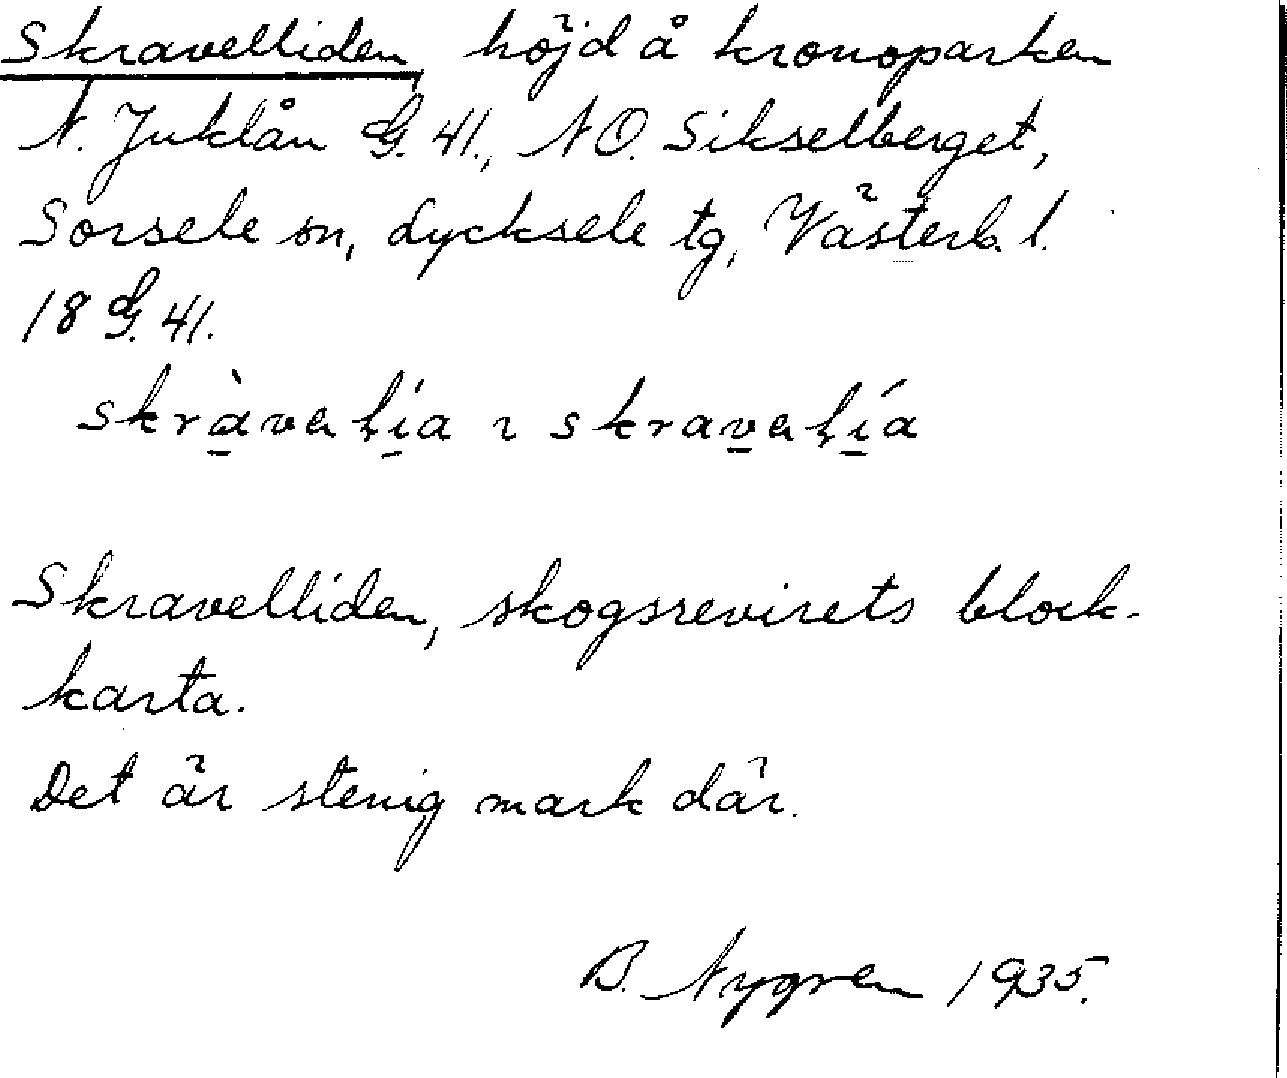 Skravelliden, höjd å kronoparken
N. Juklån G. 41., NO. Sikselberget,
Sorsele sn, Lycksele tg, Västerb. l.
18 G. 41.
skràvalía ~ skravalía
Skravelliden, skogsrevirets block-
karta.
Det är stenig mark där.
B. Nygren 1935.